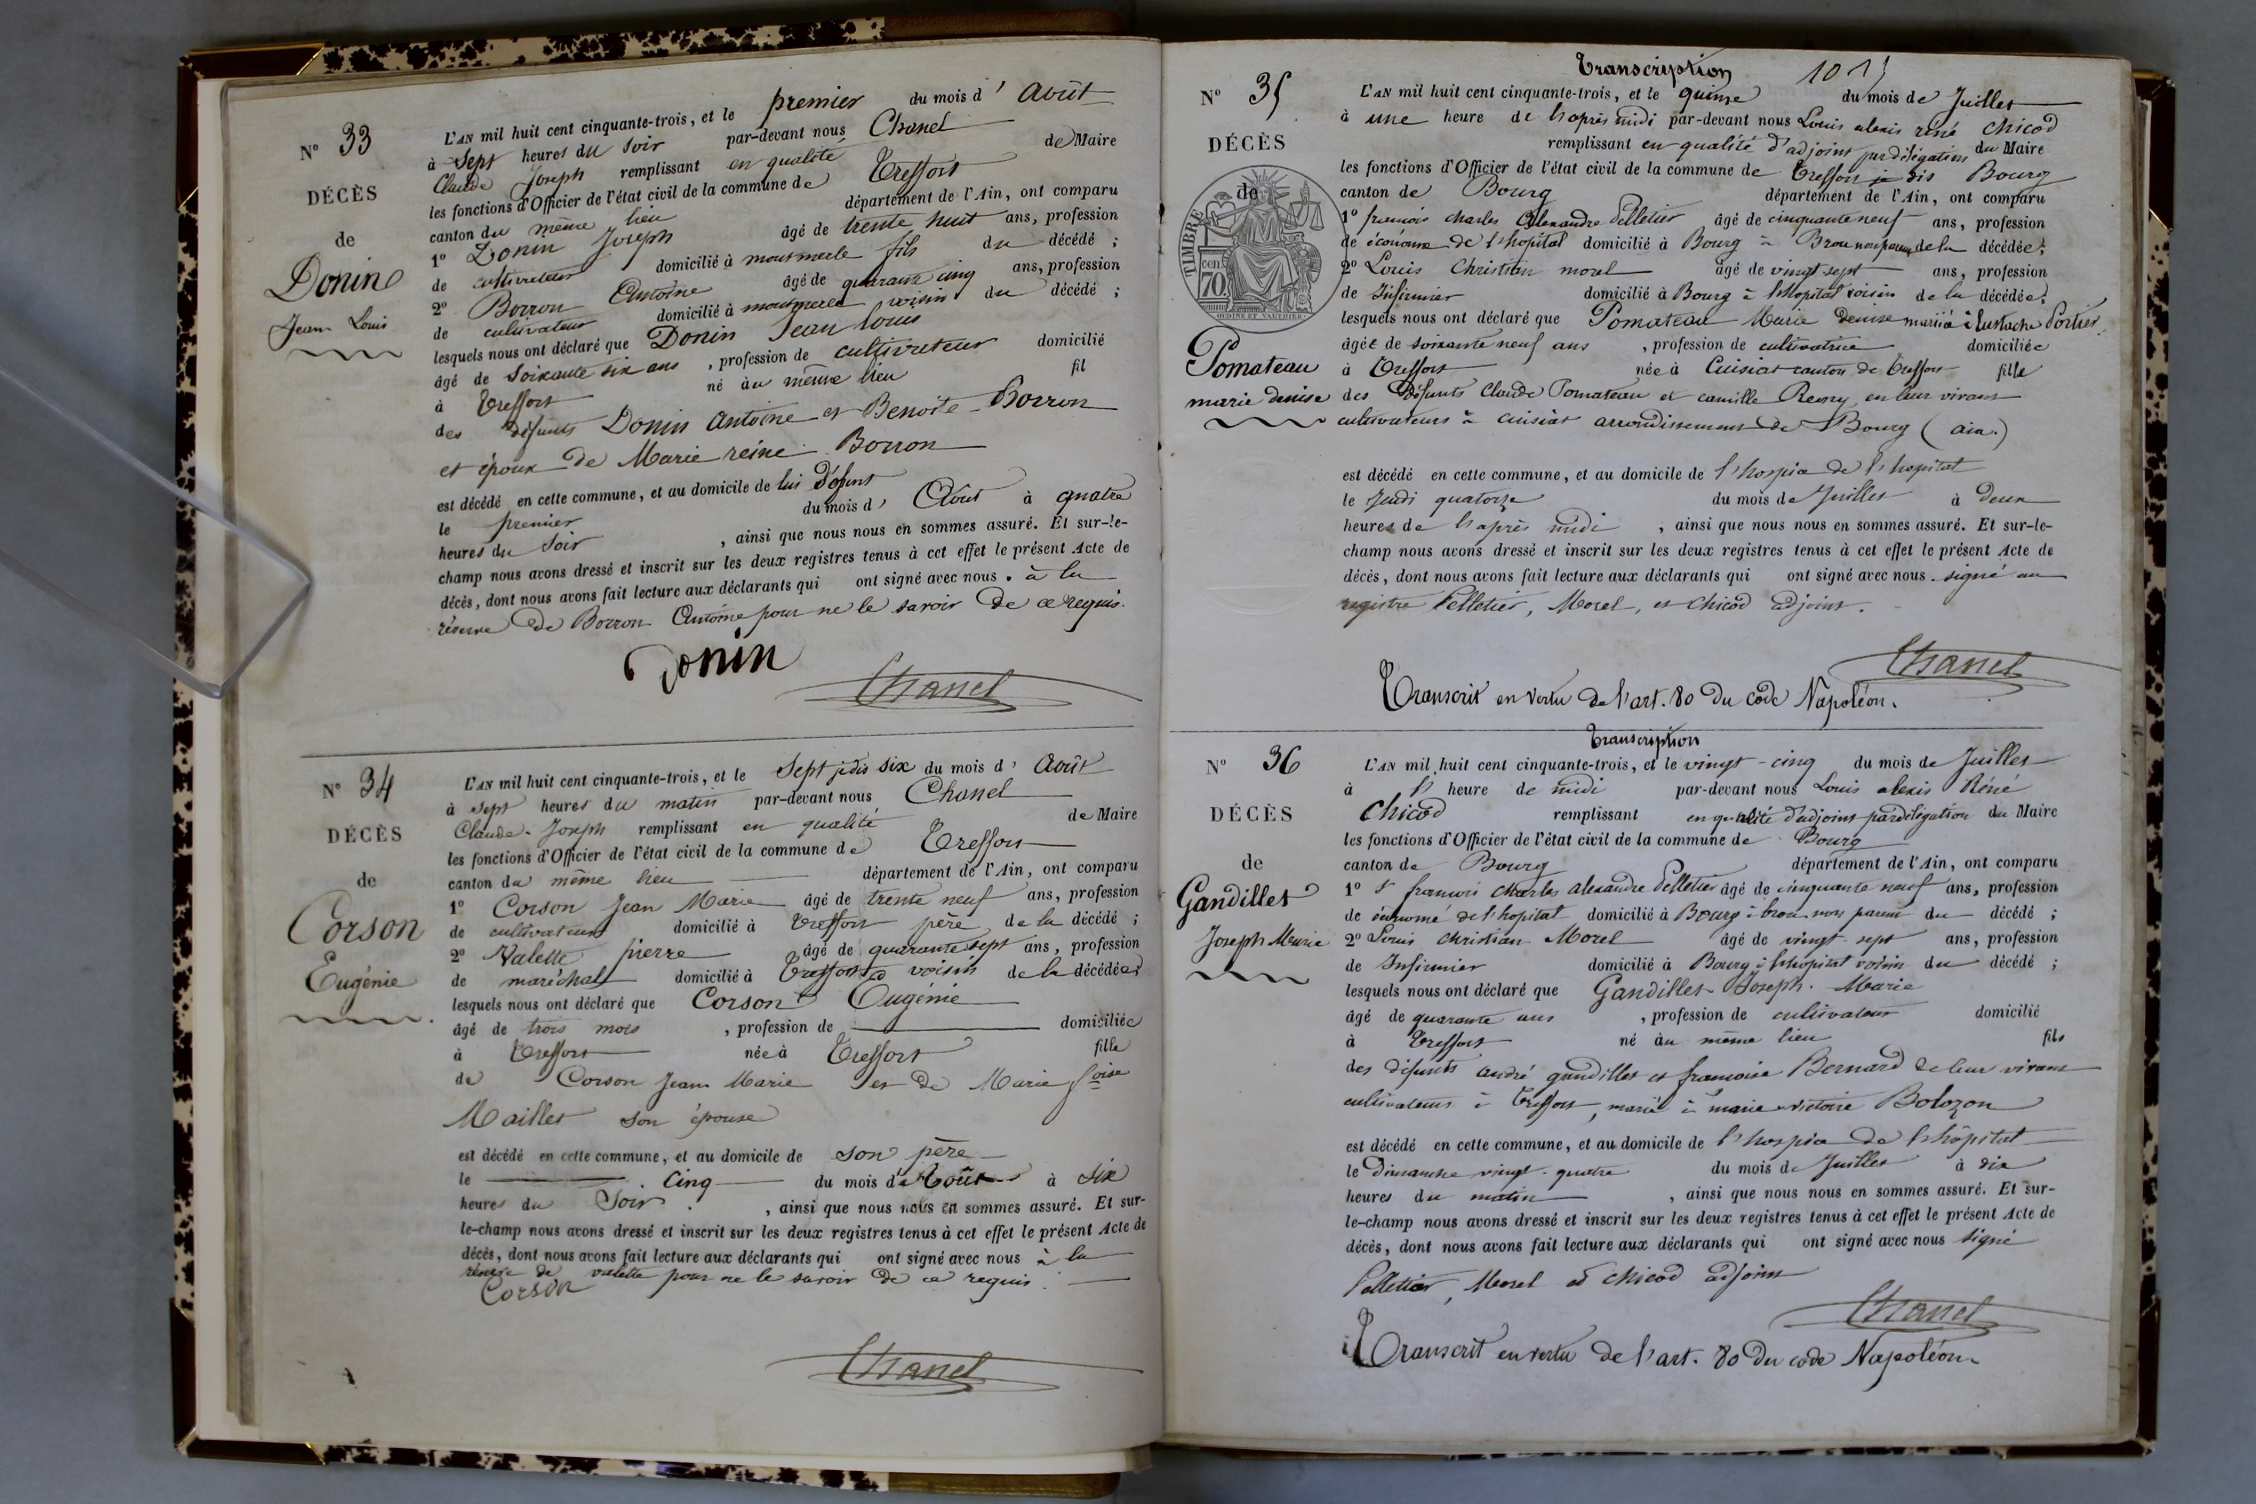 N° 33
DÉCÈS
de
Donin
Jean Louis
L'AN mil huit cent cinquante-trois, et le premier du mois d' Août
à Sept heures du soir par-devant nous Chanel
Claude Joseph remplissant en qualité de Maire
les fonctions d'Officier de l'état civil de la commune de Treffort
canton du même lieu département de l'Ain, ont comparu
1° Donin Joseph âgé de trente huit ans, profession
de cultivateur domicilié à montmerle fils du décédé ;
2° Borron Antoine âgé de quarante cinq ans, profession
de cultivateur domicilié à montmerle voisin du décédé ;
lesquels nous ont déclaré que Donin Jean Louis
âgé de Soixante six ans , profession de cultivateur domicilié
à Treffort né au même lieu fil
des défunts Donin Antoine et Benoite Borron
et époux de Marie reine Borron
est décédé en cette commune, et au domicile de lui défunt
le premier du mois d' Août à quatre
heures du Soir , ainsi que nous nous en sommes assuré. Et sur-le-
champ nous avons dressé et inscrit sur les deux registres tenus à cet effet le présent Acte de
décès, dont nous avons fait lecture aux déclarants qui ont signé avec nous . à la
réserve de Borron Antoine pour ne le savoir de ce requis.
Donin
Chanel
N° 34
DÉCÈS
de
Corson
Eugénie
L'AN mil huit cent cinquante-trois, et le Sept jedis six du mois d' Août
à sept heures du matin par-devant nous Chanel
Claude-Joseph remplissant en qualité de Maire
les fonctions d'Officier de l'état civil de la commune de Treffort
canton du même lieu département de l'Ain, ont comparu
1° Corson Jean Marie âgé de trente neuf ans, profession
de cultivateur domicilié à Treffort père de la décédé ;
2° Valette pierre âgé de quarante sept ans, profession
de maréchal domicilié à Treffort voisin de la décédée ;
lesquels nous ont déclaré que Corson Eugénie
âgé de trois mois , profession de domiciliée
à Treffort née à Treffort fille
de Corson Jean Marie et de Marie foise
Maillet son épouse
est décédé en cette commune, et au domicile de son père
le Cinq du mois d'Août à six
heures du Soir , ainsi que nous nous en sommes assuré. Et sur-
le-champ nous avons dressé et inscrit sur les deux registres tenus à cet effet le présent Acte de
décès, dont nous avons fait lecture aux déclarants qui ont signé avec nous à la
réserve de valette pour ne le savoir de ce requis.
Corson
Chanel
Transcription
N° 35
DÉCÈS
de
TIMBRE
cen
70
OUDINÉ ET VAUTHIER
Pomateau
marie denise
L'AN mil huit cent cinquante-trois, et le quinze du mois de Juillet
à une heure de l'après midi par-devant nous Louis alexis réné Chicod
remplissant en qualité d'adjoint par délégation du Maire
les fonctions d'Officier de l'état civil de la commune de Treffort je dis Bourg
canton de Bourg département de l'Ain, ont comparu
1° francois Charles Alexandre Pelletier âgé de cinquante neuf ans, profession
de économe de l'hopital domicilié à Bourg à Brou non parent de la décédée ;
2° Louis Christian morel âgé de vingt-sept ans, profession
de Infirmier domicilié à Bourg à l'hopital voisin de la décédée ;
lesquels nous ont déclaré que Pomateau Marie Denise mariée à Eustache Portier
âgée de soixante neuf ans , profession de cultivatrice domiciliée
à Treffort née à Cuisiat canton de Treffort fille
des Défunts Claude Pomateau et camille Remy en leur vivant
cultivateurs à cuisiat arrondissement de Bourg (ain.)
est décédé en cette commune, et au domicile de l'hospice de l'hopital
le Jeudi quatorze du mois de Juillet à deux
heures de l'après midi , ainsi que nous nous en sommes assuré. Et sur-le-
champ nous avons dressé et inscrit sur les deux registres tenus à cet effet le présent Acte de
décès, dont nous avons fait lecture aux déclarants qui ont signé avec nous . signé au
registre Pelletier, Morel, et Chicod adjoint.
Chanel
Transcrit en vertu de l'art. 80 du code Napoléon.
Transcription
N° 36
DÉCÈS
de
Gandillet
Joseph Marie
L'AN mil huit cent cinquante-trois, et le vingt-cinq du mois de Juillet
à heure de midi par-devant nous Louis alexis Réné
Chicod remplissant en qualité d'adjoint par délégation du Maire
les fonctions d'Officier de l'état civil de la commune de Bourg
canton de Bourg département de l'Ain, ont comparu
1° francois Charles alexandre Pelletier âgé de cinquante neuf ans, profession
de économe de l'hopital domicilié à Bourg à brou non parent du décédé ;
2° Louis Christian Morel âgé de vingt-sept ans, profession
de Infirmier domicilié à Bourg à l'hopital voisin du décédé ;
lesquels nous ont déclaré que Gandillet Joseph Marie
âgé de quarante ans , profession de cultivateur domicilié
à Treffort né au même lieu fils
des défunts andré gandillet et francoise Bernard de leur vivant
cultivateurs à Treffort, marié à marie victoire Bolozon
est décédé en cette commune, et au domicile de l'hospice de l'hôpital
le Dimanche vingt-quatre du mois de Juillet à dix
heures du matin , ainsi que nous nous en sommes assuré. Et sur-
le-champ nous avons dressé et inscrit sur les deux registres tenus à cet effet le présent Acte de
décès, dont nous avons fait lecture aux déclarants qui ont signé avec nous signé
Pelletier, Morel et Chicod adjoint
Chanel
Transcrit en vertu de l'art. 80 du code Napoléon